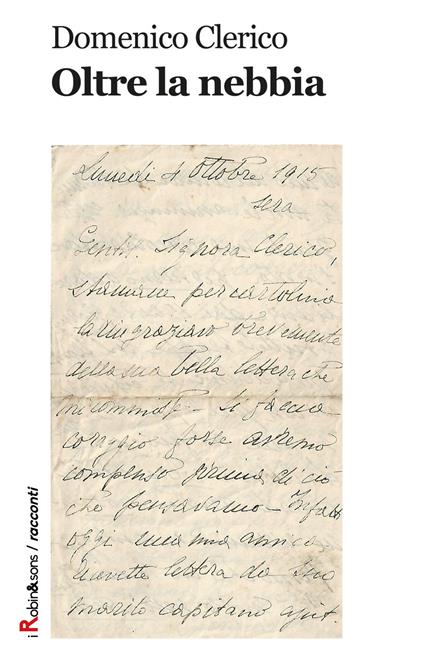 Domenico Clerico
Oltre la nebbia
Lunedì 4 Ottobre 1915
sera
Gentil. Signora Clerico,
stamane per cartolina
la ringraziavo brevemente
della sua bella lettera che
mi commosse. Si faccia
coraggio forse avremo
compenso prima di ciò
che pensavamo – Infatti
oggi una mia amica
ricevette lettera da suo
marito capitano ajut.
i Robin&sons / racconti